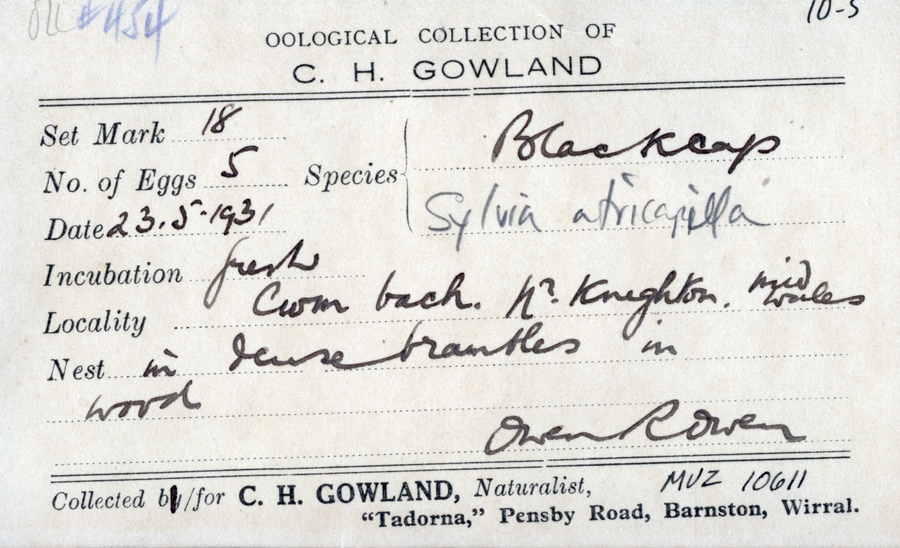 #454
10-5
OOLOGICAL COLLECTION OF
C. H. GOWLAND
Set Mark 18
No. of Eggs 5 Species Blackcap
Date 23.5.1931 Sylvia atricapilla
Incubation fresh
Locality Cwm bach. Nr. Knighton. mid wales
Nest in dense brambles in
wood
Owen R Owen
Collected by/for C. H. GOWLAND, Naturalist, MVZ 10611
"Tadorna," Pensby Road, Barnston, Wirral.